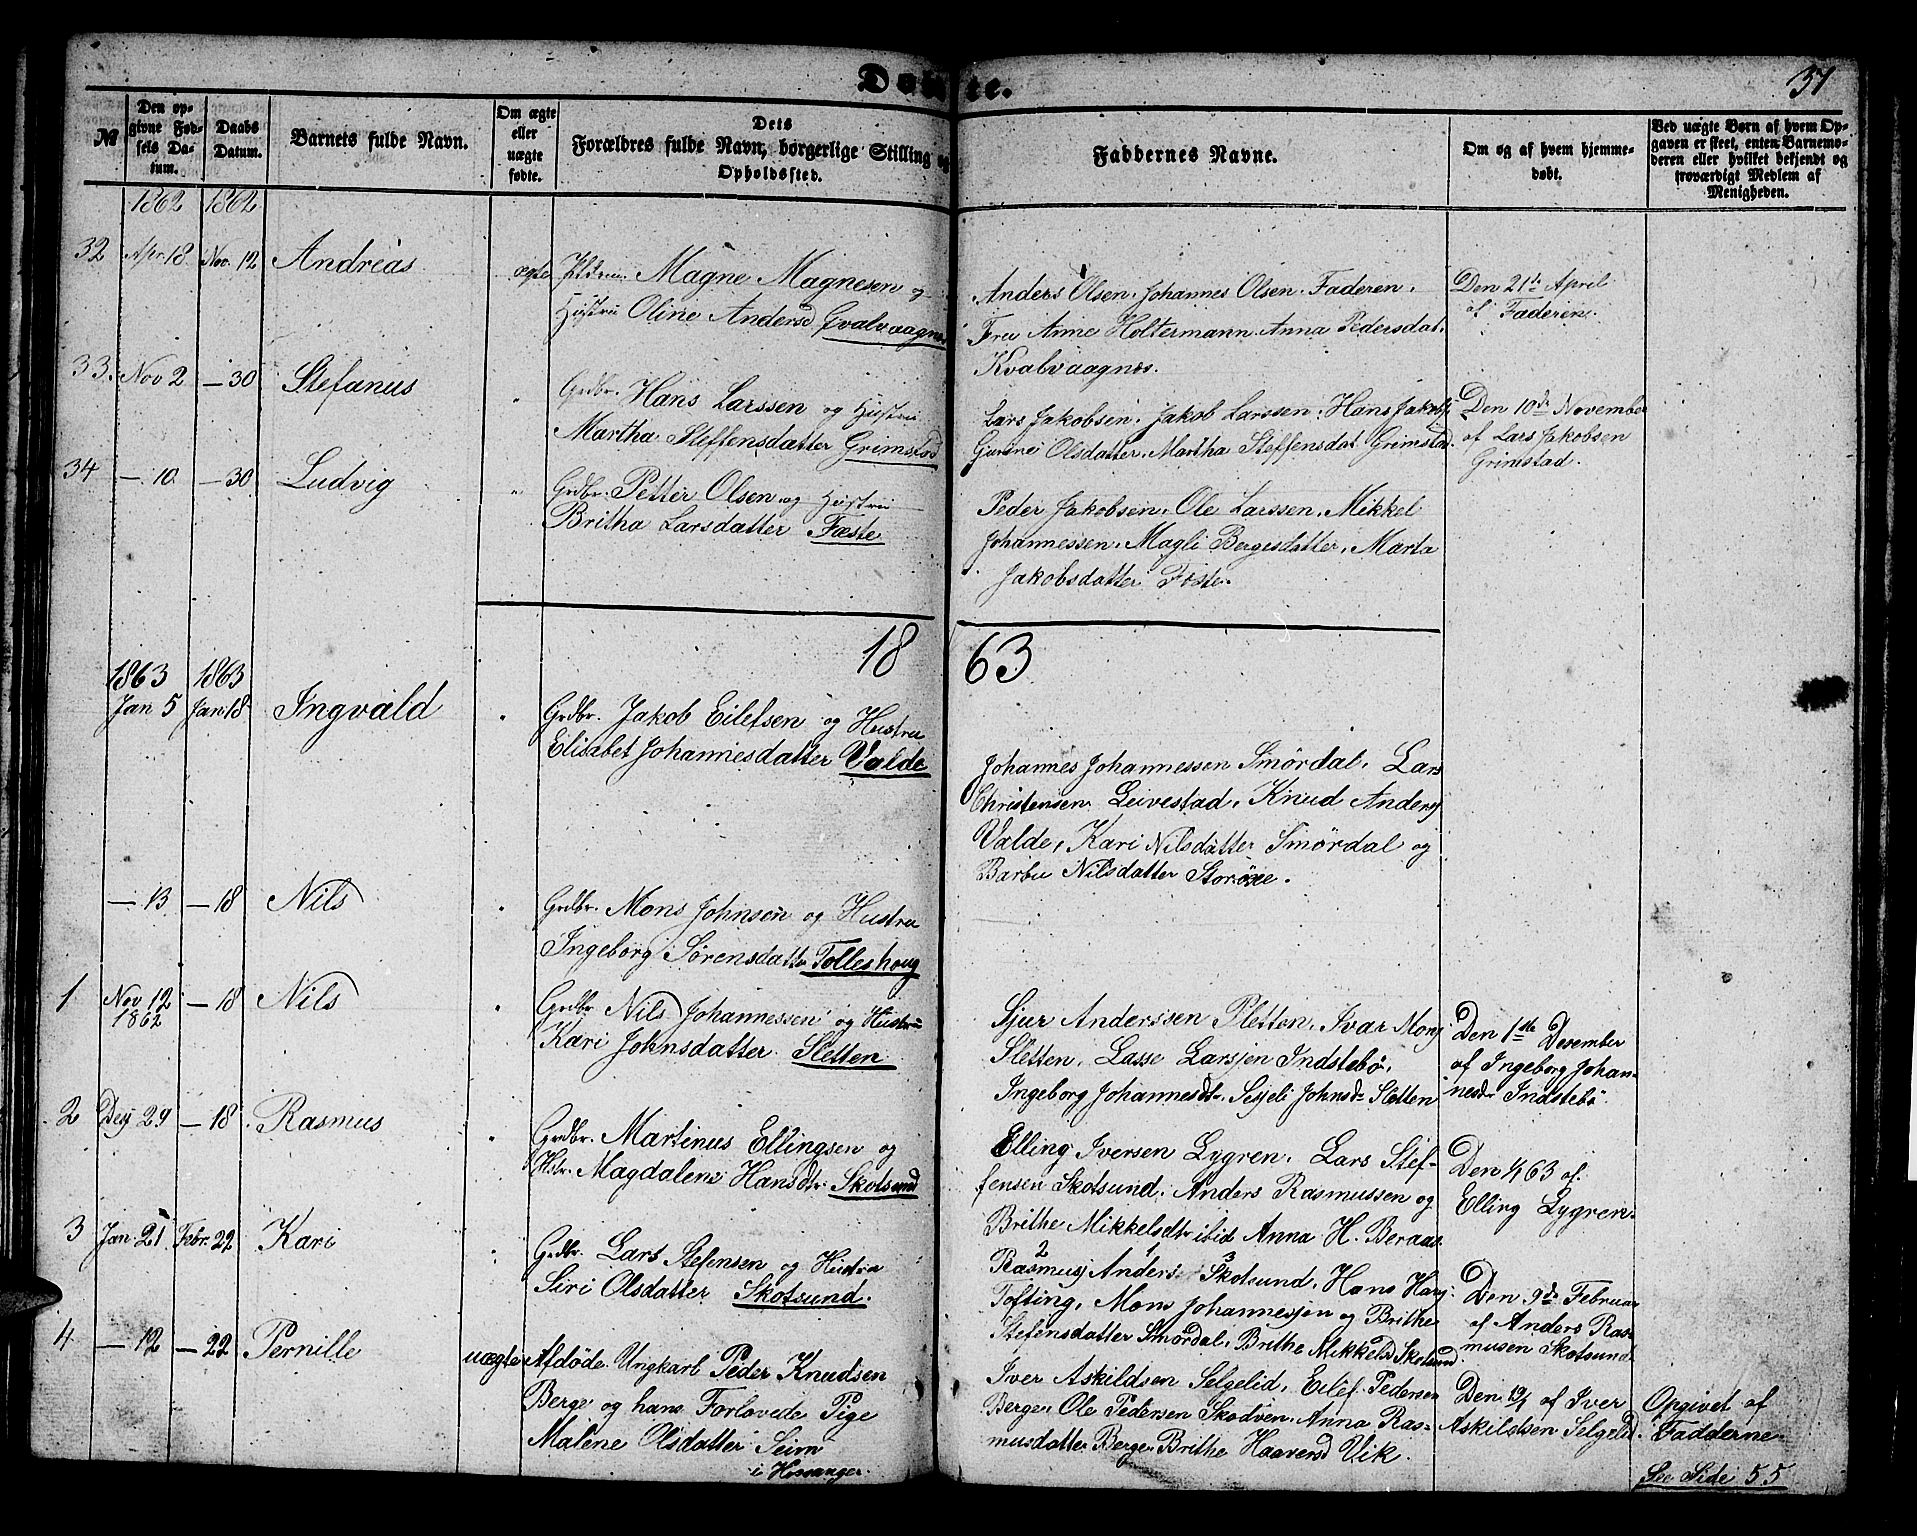 Døbte.
37
№
Den op-
givne Fød-
sels Da-
tum.
Daabs
Datum.
Barnets fulde Navn.
Om ægte
eller
uægte
fødte.
Dets
Forældres fulde Navn, borgerlige Stilling og
Opholdssted.
Faddernes Navne.
Om og af hvem hjemme-
døbt.
Ved uægte Børn af hvem Op-
gaven er skeet, enten Barnemo-
deren eller hvilket bekjendt og
troværdigt Medlem af
Menigheden.
1862 1862
32 Apr. 18. Nov. 12 Andreas
ægte Magne Magnesen og
Hustru Oline Andersd Qvalvaagnes
Anders Olsen. Johannes Olsen. Faderen.
Fru Anne Holtermann. Anna Pedersdat.
Kvalvaagnes.
Den 21de April
af Faderen.
33. Nov 2 — 30 Stefanus
" Grdbr. Hans Larssen og Hustru
Martha Steffensdatter Grimstad
Lars Jakobsen. Jakob Larssen. Hans Jakobs.
Olsdatter. Martha Steffensdat Grimstad.
Den 10de November
af Lars Jakobsen
Grimstad.
34 — 10. — 30 Ludvig
" Grdbr. Petter Olsen og Hustru
Britha Larsdatter Fæste
Peder Jakobsen. Ole Larssen. Mikkel
Johannessen. Magli Bergesdatter. Marta
Jakobsdatter Foste.
18 63
1863 1863
Jan 5 Jan 18 Ingvald
" Grdbr. Jakob Eilefsen og Hustru
Elisabet Johannesdatter Valde
Johannes Johannessen Smørdal. Lars
Christensen Leivestad. Knud Anders
Valde, Kari Nilsdatter Smørdal og
Barbu Nilsdatter Storøxe.
— 13 — 18 Nils
" Grdbr. Mons Johnson og Hustru
Ingeborg Sørensdattr Tolleshoug
1 Nov 12 — 18 Nils
1862
" Grdbr Nils Johannessen og Hustru
Kari Johnsdatter Sletten
Sjur Anderssen Pletten. Ivar Mons
Sletten. Lasse Larsjen Indstebø.
Ingeborg Johannesdt. Sesjeli Johnsd. Sletten
Den 1ste Desember
af Ingeborg Johan-
nesdr Indstebø.
2 Des 29 — 18 Rasmus
" Grdbr. Martinus Ellingsen og
Hstr. Magdalene Hansdtr. Skotsund
Elling Iversen Lygren. Lars Stef-
fensen Skotsund. Anders Rasmussen og
Brithe Mikkelsdtr ibid Anna H. Beraas
Den 4/1 63 af
Elling Lygren.
3 Jan 21 Febr. 22 Kari
" Grdbr. Lars Stefensen og Hustru
Siri Olsdatter Skotsund.
2 1 3
Rasmus Anders Skotsund. Hans Hans
Tofting. Mons Johannesjen og Brithe
Stefensdatter Smørdal. Brithe Mikkelsd Skotsund
Den 9de Februar
af Anders Ras-
musen Skotsund.
4 — 12 — 22 Pernille
uægte Afdøde Ungkarl Peder Knudsen
Berge og hans Forlovede Pige
Malene Olsdatter Seim
i Hosanger.
Iver Askildsen Selgelid. Eilef Pedersen
Berge. Ole Pedersen Skodven. Anna Ras-
musdatter Berge. Brithe Haaversd Vik.
Den 19/1 af Iver
Askildsen Selgelid.
Opgivet af
Fadderne
See Side 55